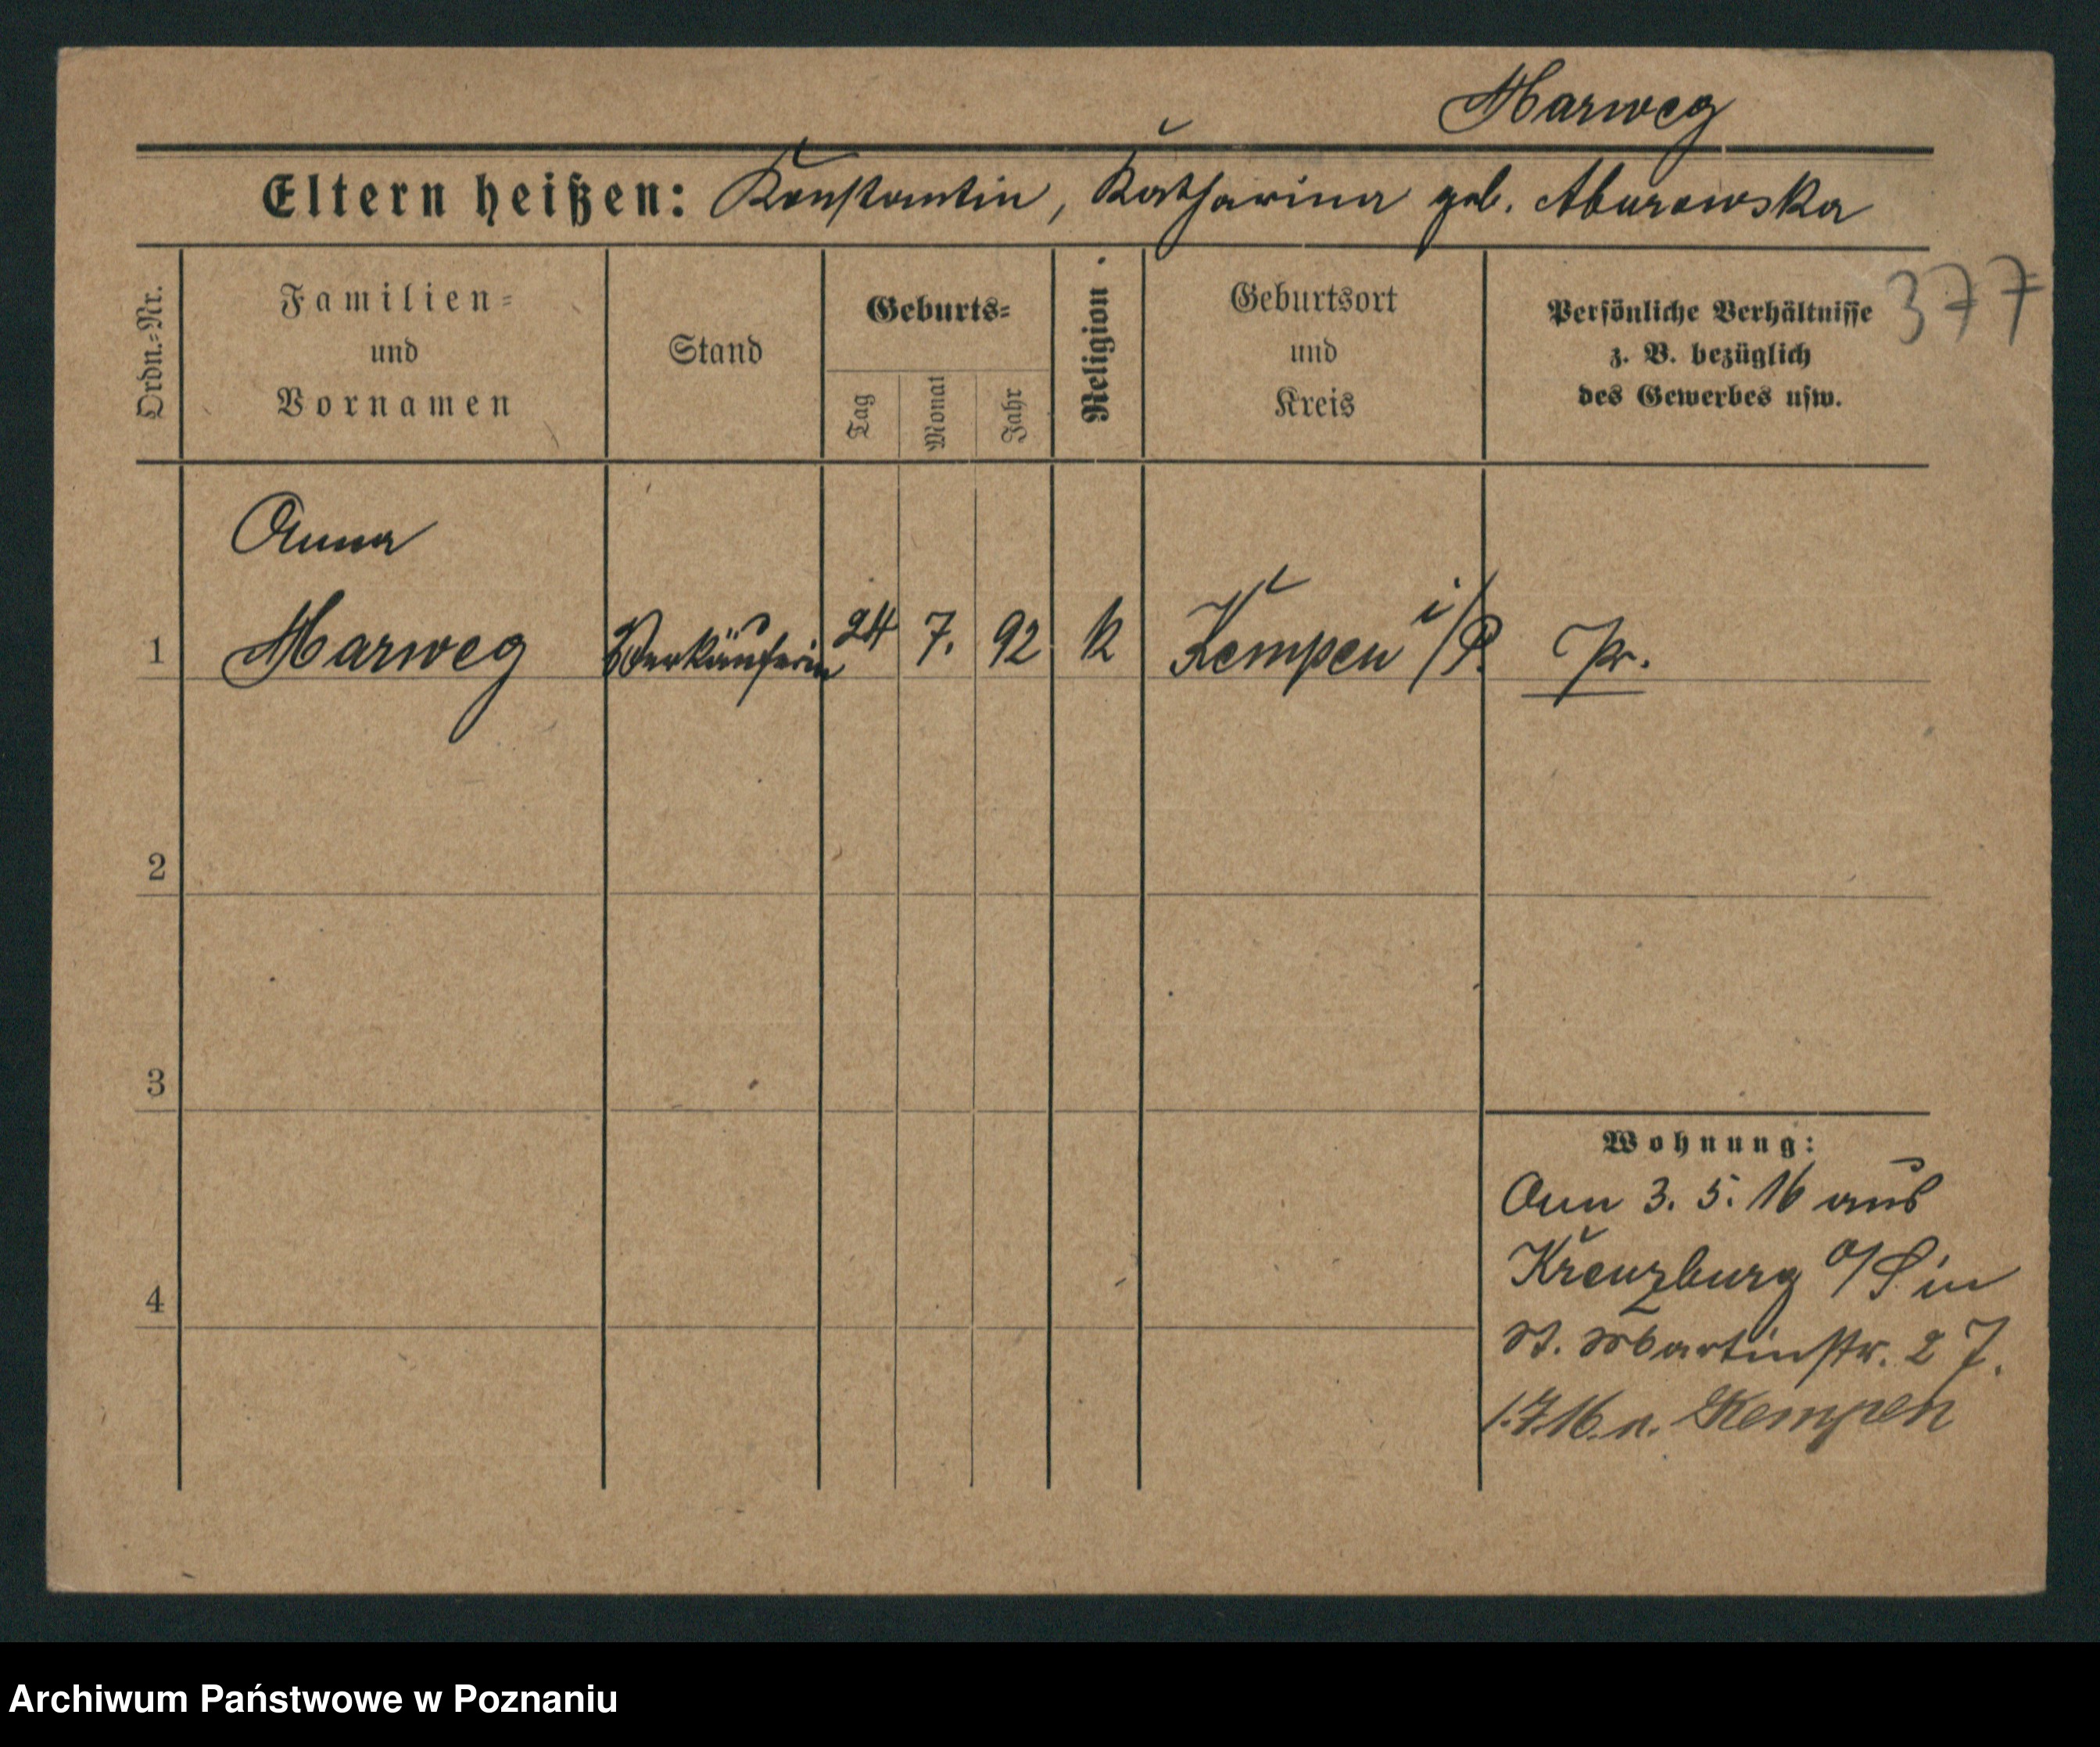 Marweg
Eltern heißen: Konstantin, Katharina geb. Aburowska
377
Ordn.=Nr.
Familien=
und
Vornamen
Stand
Geburts=
Tag
Monat
Jahr
Religion.
Geburtsort
und
Kreis
Persönliche Verhältnisse
z. B. bezüglich
des Gewerbes usw.
Anna
1 Marweg Verkäuferin 24 7. 92 k Kempen i/P. Pr.
2
3
4
Wohnung:
Am 3. 5. 16 aus
Kreuzburg O/S in
St. Martinstr. 27.
1.7.16. n. Kempen
Archiwum Państwowe w Poznaniu